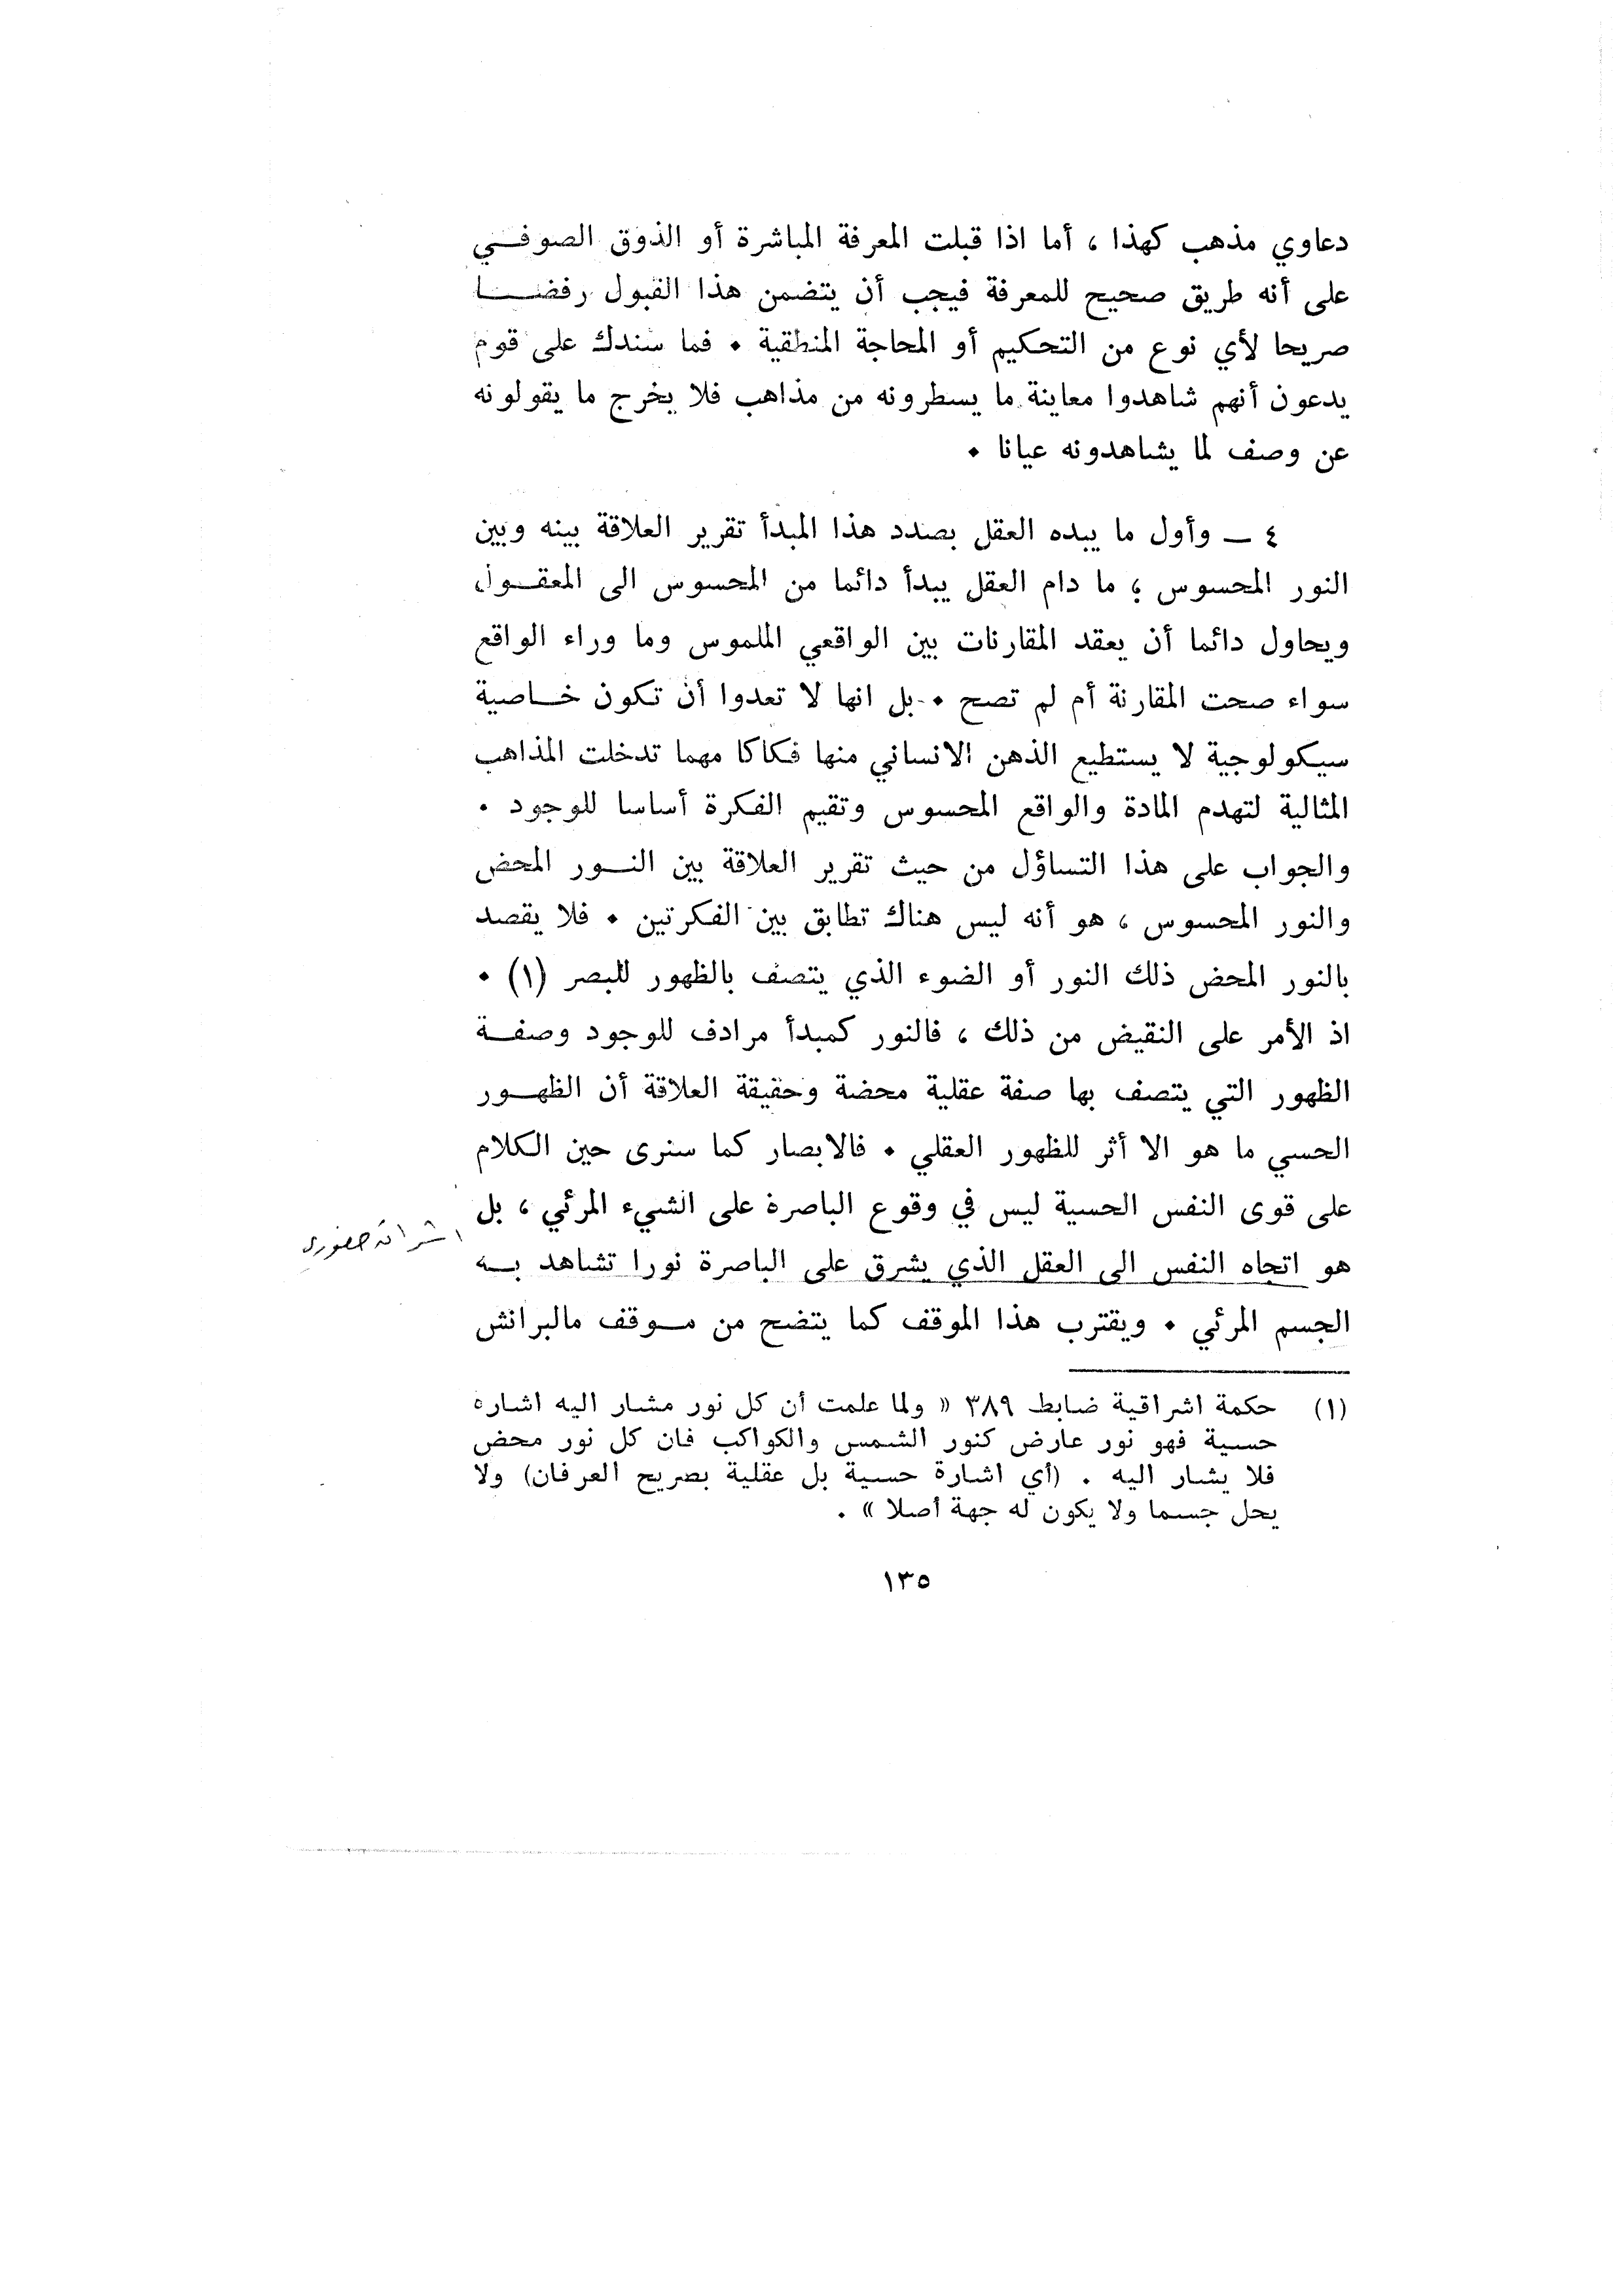 دعاوي مذهب كهذا ، أما اذا قبلت المعرفة المباشرة أو الذوق الصوفي
على أنه طريق صحيح للمعرفة فيجب أن يتضمن هذا القبول رفضا
صريحا لأي نوع من التحكيم أو المحاجة المنطقية . فما سندك على قوم
يدعون أنهم شاهدوا معاينة ما يسطرونه من مذاهب فلا يخرج ما يقولونه
عن وصف لما يشاهدونه عيانا .
٤ ــ وأول ما يبده العقل بصدد هذا المبدأ تقرير العلاقة بينه وبين
النور المحسوس ؛ ما دام العقل يبدأ دائما من المحسوس الى المعقول
ويحاول دائما أن يعقد المقارنات بين الواقعي الملموس وما وراء الواقع
سواء صحت المقارنة أم لم تصح . بل انها لا تعدوا أن تكون خاصية
سيكولوجية لا يستطيع الذهن الانساني منها فكاكا مهما تدخلت المذاهب
المثالية لتهدم المادة والواقع المحسوس وتقيم الفكرة أساسا للوجود .
والجواب على هذا التساؤل من حيث تقرير العلاقة بين النور المحض
والنور المحسوس ، هو أنه ليس هناك تطابق بين الفكرتين . فلا يقصد
بالنور المحض ذلك النور أو الضوء الذي يتصف بالظهور للبصر (١) .
اذ الأمر على النقيض من ذلك ، فالنور كمبدأ مرادف للوجود وصفة
الظهور التي يتصف بها صفة عقلية محضة وحقيقة العلاقة أن الظهور
الحسي ما هو الا أثر للظهور العقلي . فالابصار كما سنرى حين الكلام
على قوى النفس الحسية ليس في وقوع الباصرة على الشيء المرئي ، بل
هو اتجاه النفس الى العقل الذي يشرق على الباصرة نورا تشاهد به
الجسم المرئي . ويقترب هذا الموقف كما يتضح من موقف مالبرانش
حضوري
(١) حكمة اشراقية ضابط ٣٨٩ « ولما علمت أن كل نور مشار اليه اشارة
حسية فهو نور عارض كنور الشمس والكواكب فان كل نور محض
فلا يشار اليه . (أي اشارة حسية بل عقلية بصريح العرفان) ولا
يحل جسما ولا يكون له جهة أصلا » .
١٣٥